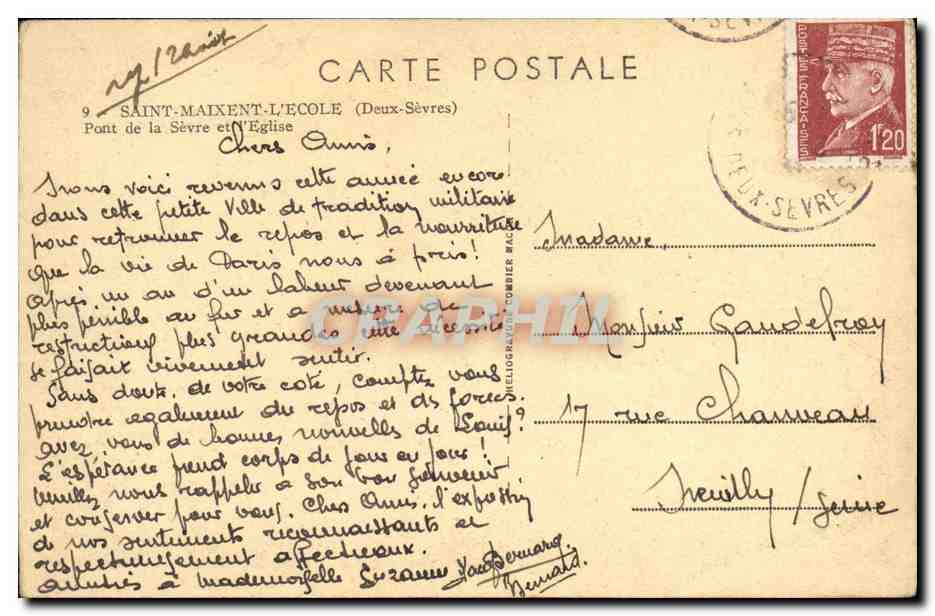 rep 12 août
CARTE POSTALE
9 SAINT-MAIXENT-L'ECOLE (Deux-Sèvres)
Pont de la Sèvre et l'Eglise
POSTES FRANÇAISES
1F20
DEUX-SEVRES
HELIOGRAVURE COMBIER MACON
CPAPHIL
Chers Amis,
Nous voici revenus cette année encore
dans cette petite Ville de tradition militaire
pour retrouver le repos et la nourriture
que la vie de Paris nous a pris!
Après un an d'un labeur devenant
plus pénible au fur et à mesure de
restrictions plus grandes cette nécessité
se faisait vivement sentir.
Sans doute, de votre côté, comptez vous
prendre également du repos et des forces.
Avez vous de bonnes nouvelles de Louis?
L'espérance prend corps de jour en jour!
Veuillez nous rappeler à son bon souvenir
et conserver pour vous, Chers Amis, l'expression
de nos sentiments reconnaissants et
respectueusement affectueux.
Amitiés à Mademoiselle Suzanne
Bernard.
Madame,
Monsieur Gaudefroy
17 rue Chauveau
Neuilly / Seine